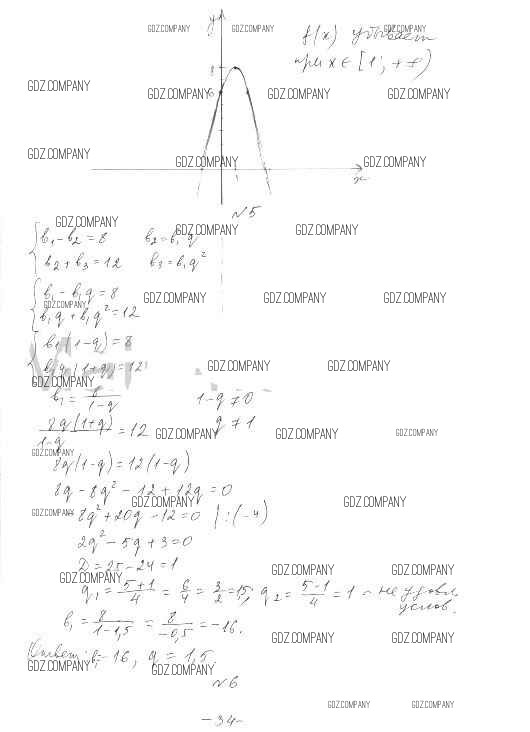 GDZ.COMPANY GDZ.COMPANY GDZ.COMPANY
y
f(x) убывает
при x ∈ [1; +∞)
8
6
GDZ.COMPANY GDZ.COMPANY GDZ.COMPANY GDZ.COMPANY
GDZ.COMPANY GDZ.COMPANY GDZ.COMPANY
x
N5
GDZ.COMPANY GDZ.COMPANY GDZ.COMPANY
b₁ - b₂ = 8 b₂ = b₁q
b₂ + b₃ = 12 b₃ = b₁q²
b₁ - b₁q = 8
GDZ.COMPANY GDZ.COMPANY GDZ.COMPANY GDZ.COMPANY
b₁q + b₁q² = 12
b₁(1-q) = 8
b₁q(1+q) = 12
GDZ.COMPANY GDZ.COMPANY GDZ.COMPANY
b₁ = 8/(1-q) 1-q ≠ 0
8q(1+q)/(1-q) = 12 q ≠ 1
GDZ.COMPANY GDZ.COMPANY GDZ.COMPANY GDZ.COMPANY
8q(1-q) = 12(1-q)
8q - 8q² - 12 + 12q = 0
GDZ.COMPANY GDZ.COMPANY GDZ.COMPANY
-8q² + 20q - 12 = 0 | :(-4)
2q² - 5q + 3 = 0
D = 25 - 24 = 1
GDZ.COMPANY GDZ.COMPANY GDZ.COMPANY
q₁ = (5+1)/4 = 6/4 = 3/2 = 1,5; q₂ = (5-1)/4 = 1 - не удовл.
услов.
b₁ = 8/(1-1,5) = 8/(-0,5) = -16.
GDZ.COMPANY GDZ.COMPANY
Ответ: b₁ = -16, q = 1,5.
GDZ.COMPANY GDZ.COMPANY
N6
GDZ.COMPANY GDZ.COMPANY
-34-